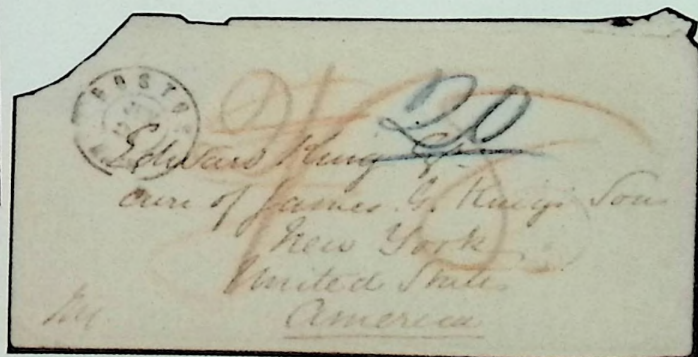 BOSTO
20
Edward King Esqr
care of James G. King's Sons
New York
United States
America